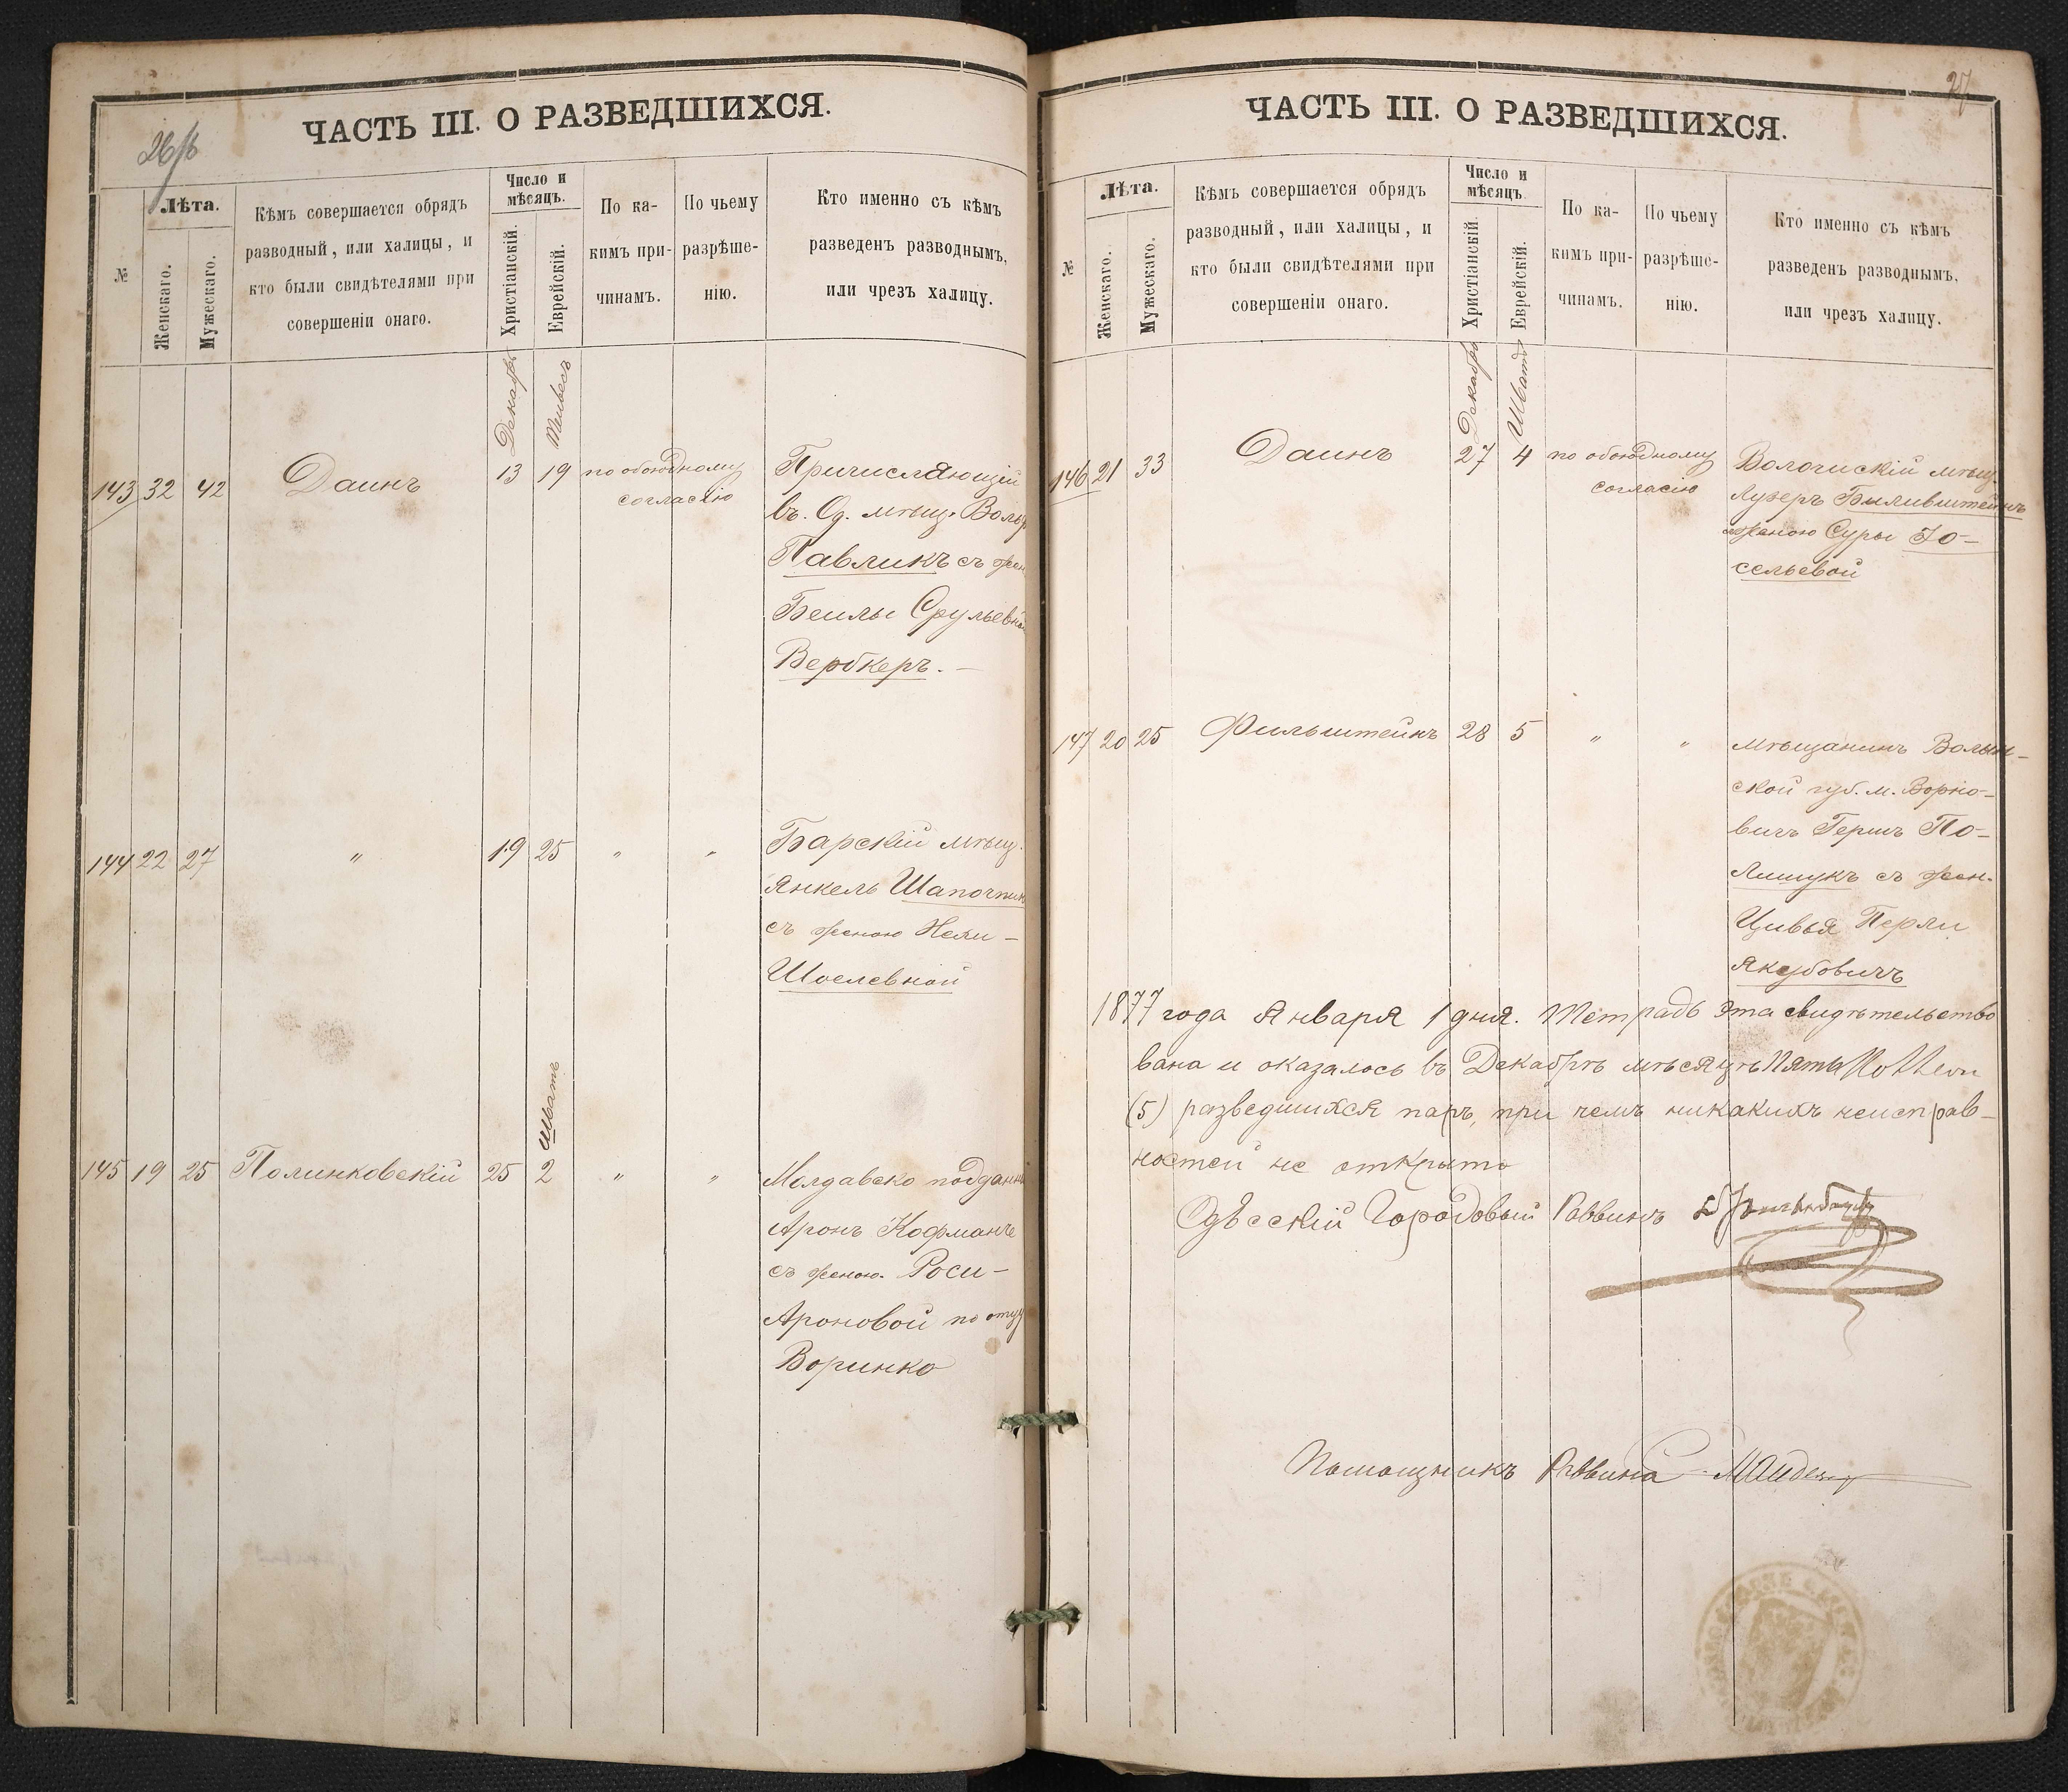 ЧАСТЬ III. О РАЗВЕДШИХСЯ.
№
Лѣта.
Женскаго.
Мужескаго.
Кѣмъ совершается обрядъ
разводный, или халицы, и
кто были свидѣтелями при
совершеніи онаго.
Число и
мѣсяцъ.
Христіанскій.
Еврейскій.
По ка-
кимъ при-
чинамъ.
По чьему
разрѣше-
нію.
Кто именно съ кѣмъ
разведенъ разводнымъ,
или чрезъ халицу.
Декабрь
Тейвесъ
143 32 42 Даинъ 13 19 по обоюдному
согласію
Причисляющій
въ Од. мѣщ.
Павликъ съ жен
Беилы Срульевной
Верѣкеръ.
144 22 27 " 19 25 " "
Барскій мѣщ.
Янкель Шапочник
съ женою
Шоелевной
Шватъ
145 19 25 Полинковскій 25 2 " "
Молдавско подданн
Аронъ Кофманъ
съ женою Роси-
Ароновой по отцу
Воринко
27
ЧАСТЬ III. О РАЗВЕДШИХСЯ.
№
Лѣта.
Женскаго.
Мужескаго.
Кѣмъ совершается обрядъ
разводный, или халицы, и
кто были свидѣтелями при
совершеніи онаго.
Число и
мѣсяцъ.
Христіанскій.
Еврейскій.
По ка-
кимъ при-
чинамъ.
По чьему
разрѣше-
нію.
Кто именно съ кѣмъ
разведенъ разводнымъ,
или чрезъ халицу.
Декабрь
Шватъ
146 21 33 Даинъ 27 4 по обоюдному
согласію
мѣщ.
Лузеръ
женою Суры Іо-
сельевой
147 20 25 Фильштейнъ 28 5 " "
мѣщанинъ Волын-
ской губ. м.
Гершъ По-
лищукъ съ жен.
Цивья Перли
Якубовичъ
1877 года Января 1 дня. Тетрадь эта свидѣтельство
вана и оказалось въ Декабрѣ мѣсяцѣ пять
(5) разведшихся паръ, при чемъ никакихъ неисправ-
ностей не открыто
Одѣсскій Городовый Раввинъ
Помощникъ Раввина